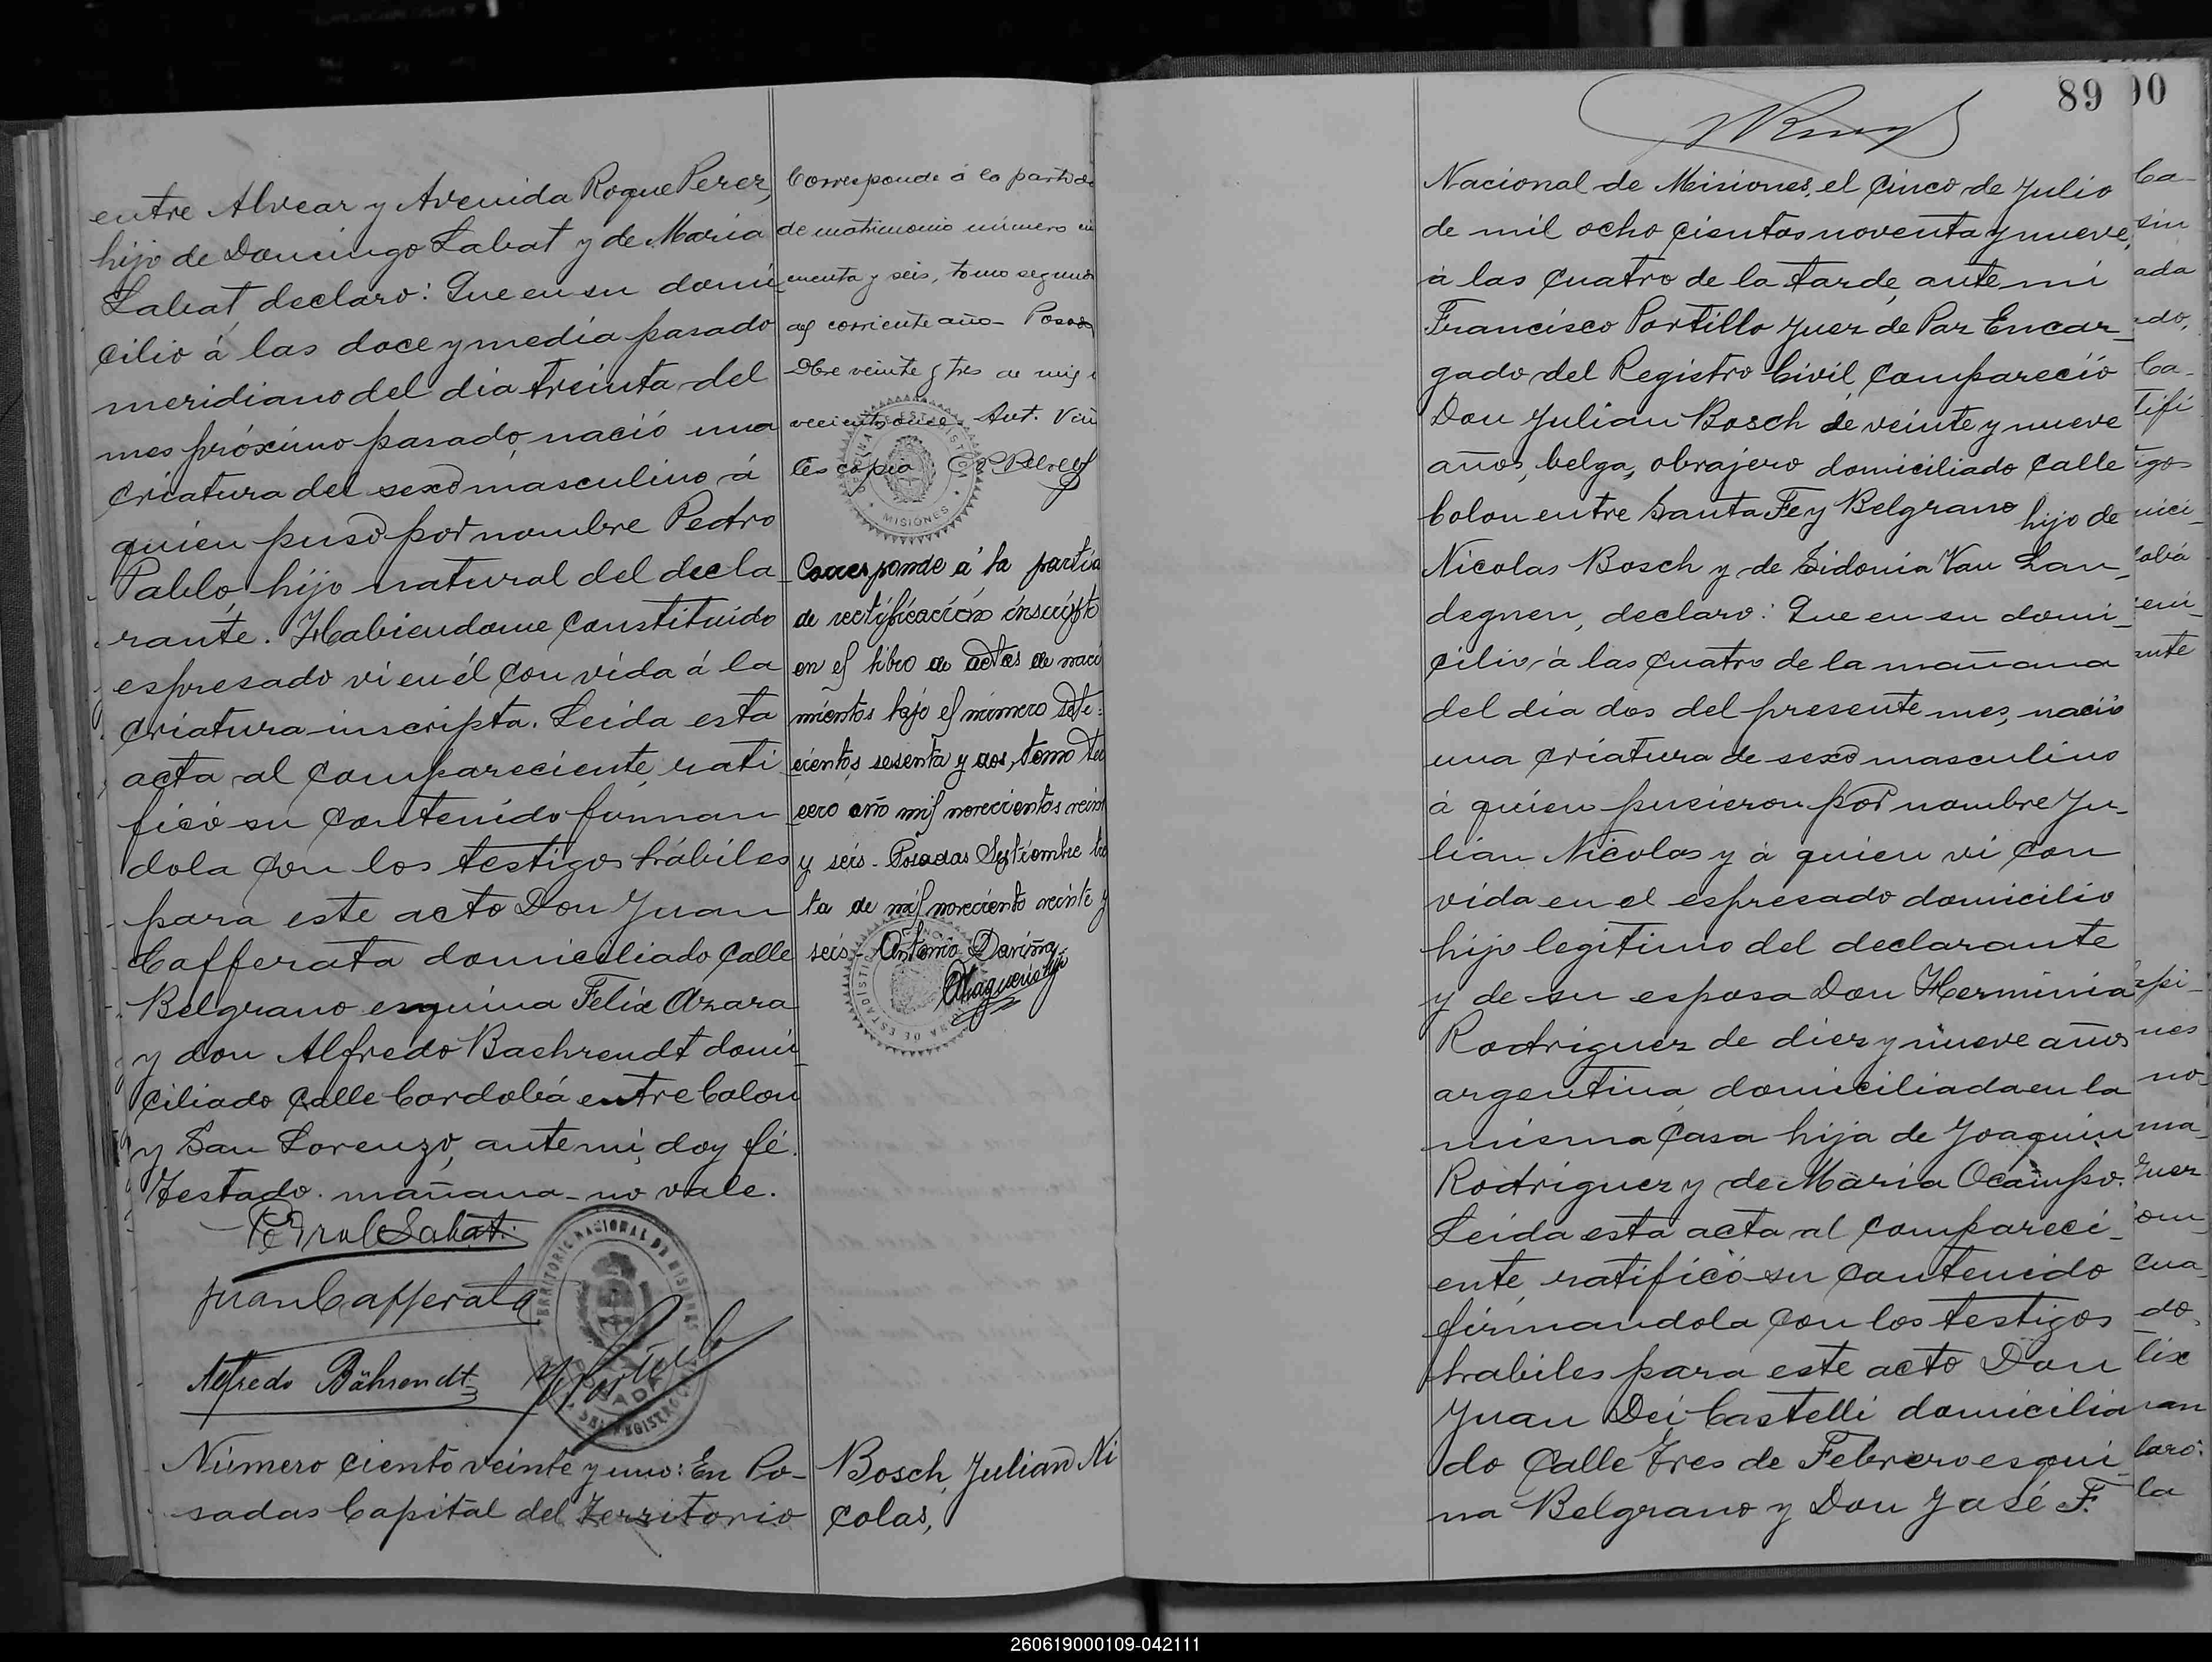 entre Alvear y Avenida Roque Perez,
hijo de Domingo Labat y de Maria
Labat, declaro: Que en su domi
cilio á las doce y media pasado
meridiano del dia treinta del
mes próximo pasado, nació una
criatura del sexo masculino á
quien puso por nombre Pedro
Pablo, hijo natural del decla
rante. Habiendome constituido
espresado vi en él con vida á la
criatura inscripta. Leida esta
acta al compareciente, rati
ficó su contenido firman
dola con los testigos hábiles
para este acto Don Juan
Cafferata domiciliado calle
Belgrano esquina Felix Azara
y don Alfredo Baehrendt domi
ciliado calle Cordobá entre Colon
y San Lorenzo, ante mi, doy fé.
Testado. mañana - no vale.
Labat.
Juan Cafferata
Alfredo Bährendt
TERRITORIO NACIONAL DE MISIONES
POSADAS
Número ciento veinte y uno: En Po-
sadas Capital del Territorio
Corresponde á la partida
de matrimonio número cin
cuenta y seis, tomo segundo
del corriente año - Posadas
Dbre veinte y tres de mil
vecientos once. Ant.
Es copia
MISIONES
Corresponde á la partida
de rectificación inscripto
en el libro de actas de naci
mientos bajo el número sete:
cientos sesenta y dos, tomo ter
cero año mil novecientos veint
y seis - Posadas Septiembre tre
ta de mil noveciento veinte y
seis - Antonio
OFICINA DE ESTADISTICA
Bosch, Julian Ni
colas,
89
90
Nacional de Misiones, el cinco de Julio
de mil ocho cientos noventa y nueve,
à las cuatro de la tarde, ante mi
Francisco Portillo Juez de Paz Encar
gado del Registro Civil, compareció
Don Julian Bosch de veinte y nueve
años, belga, obrajero domiciliado calle
Colon entre Santa Fe y Belgrano hijo de
Nicolas Bosch y de Sidonia Van Lan
degnen, declaro: Que en su domi
cilio, à las cuatro de la mañana
del dia dos del presente mes, nació
una criatura de sexo masculino
à quien pusieron por nombre Ju-
lian Nicolas y à quien vi con
vida en el espresado domicilio
hijo legitimo del declarante
y de su esposa Don Herminia
Rodriguez de diez y nueve años
argentina, domiciliada en la
misma casa hija de Joaquin
Rodriguez y de Maria Ocampo.
Leida esta acta al compareci
ente, ratificó su contenido
firmandola con los testigos
habiles para este acto Don
Juan Dei Castelli domicilia
do calle Tres de Febrero esqui
na Belgrano y Don José F.
260619000109-042111